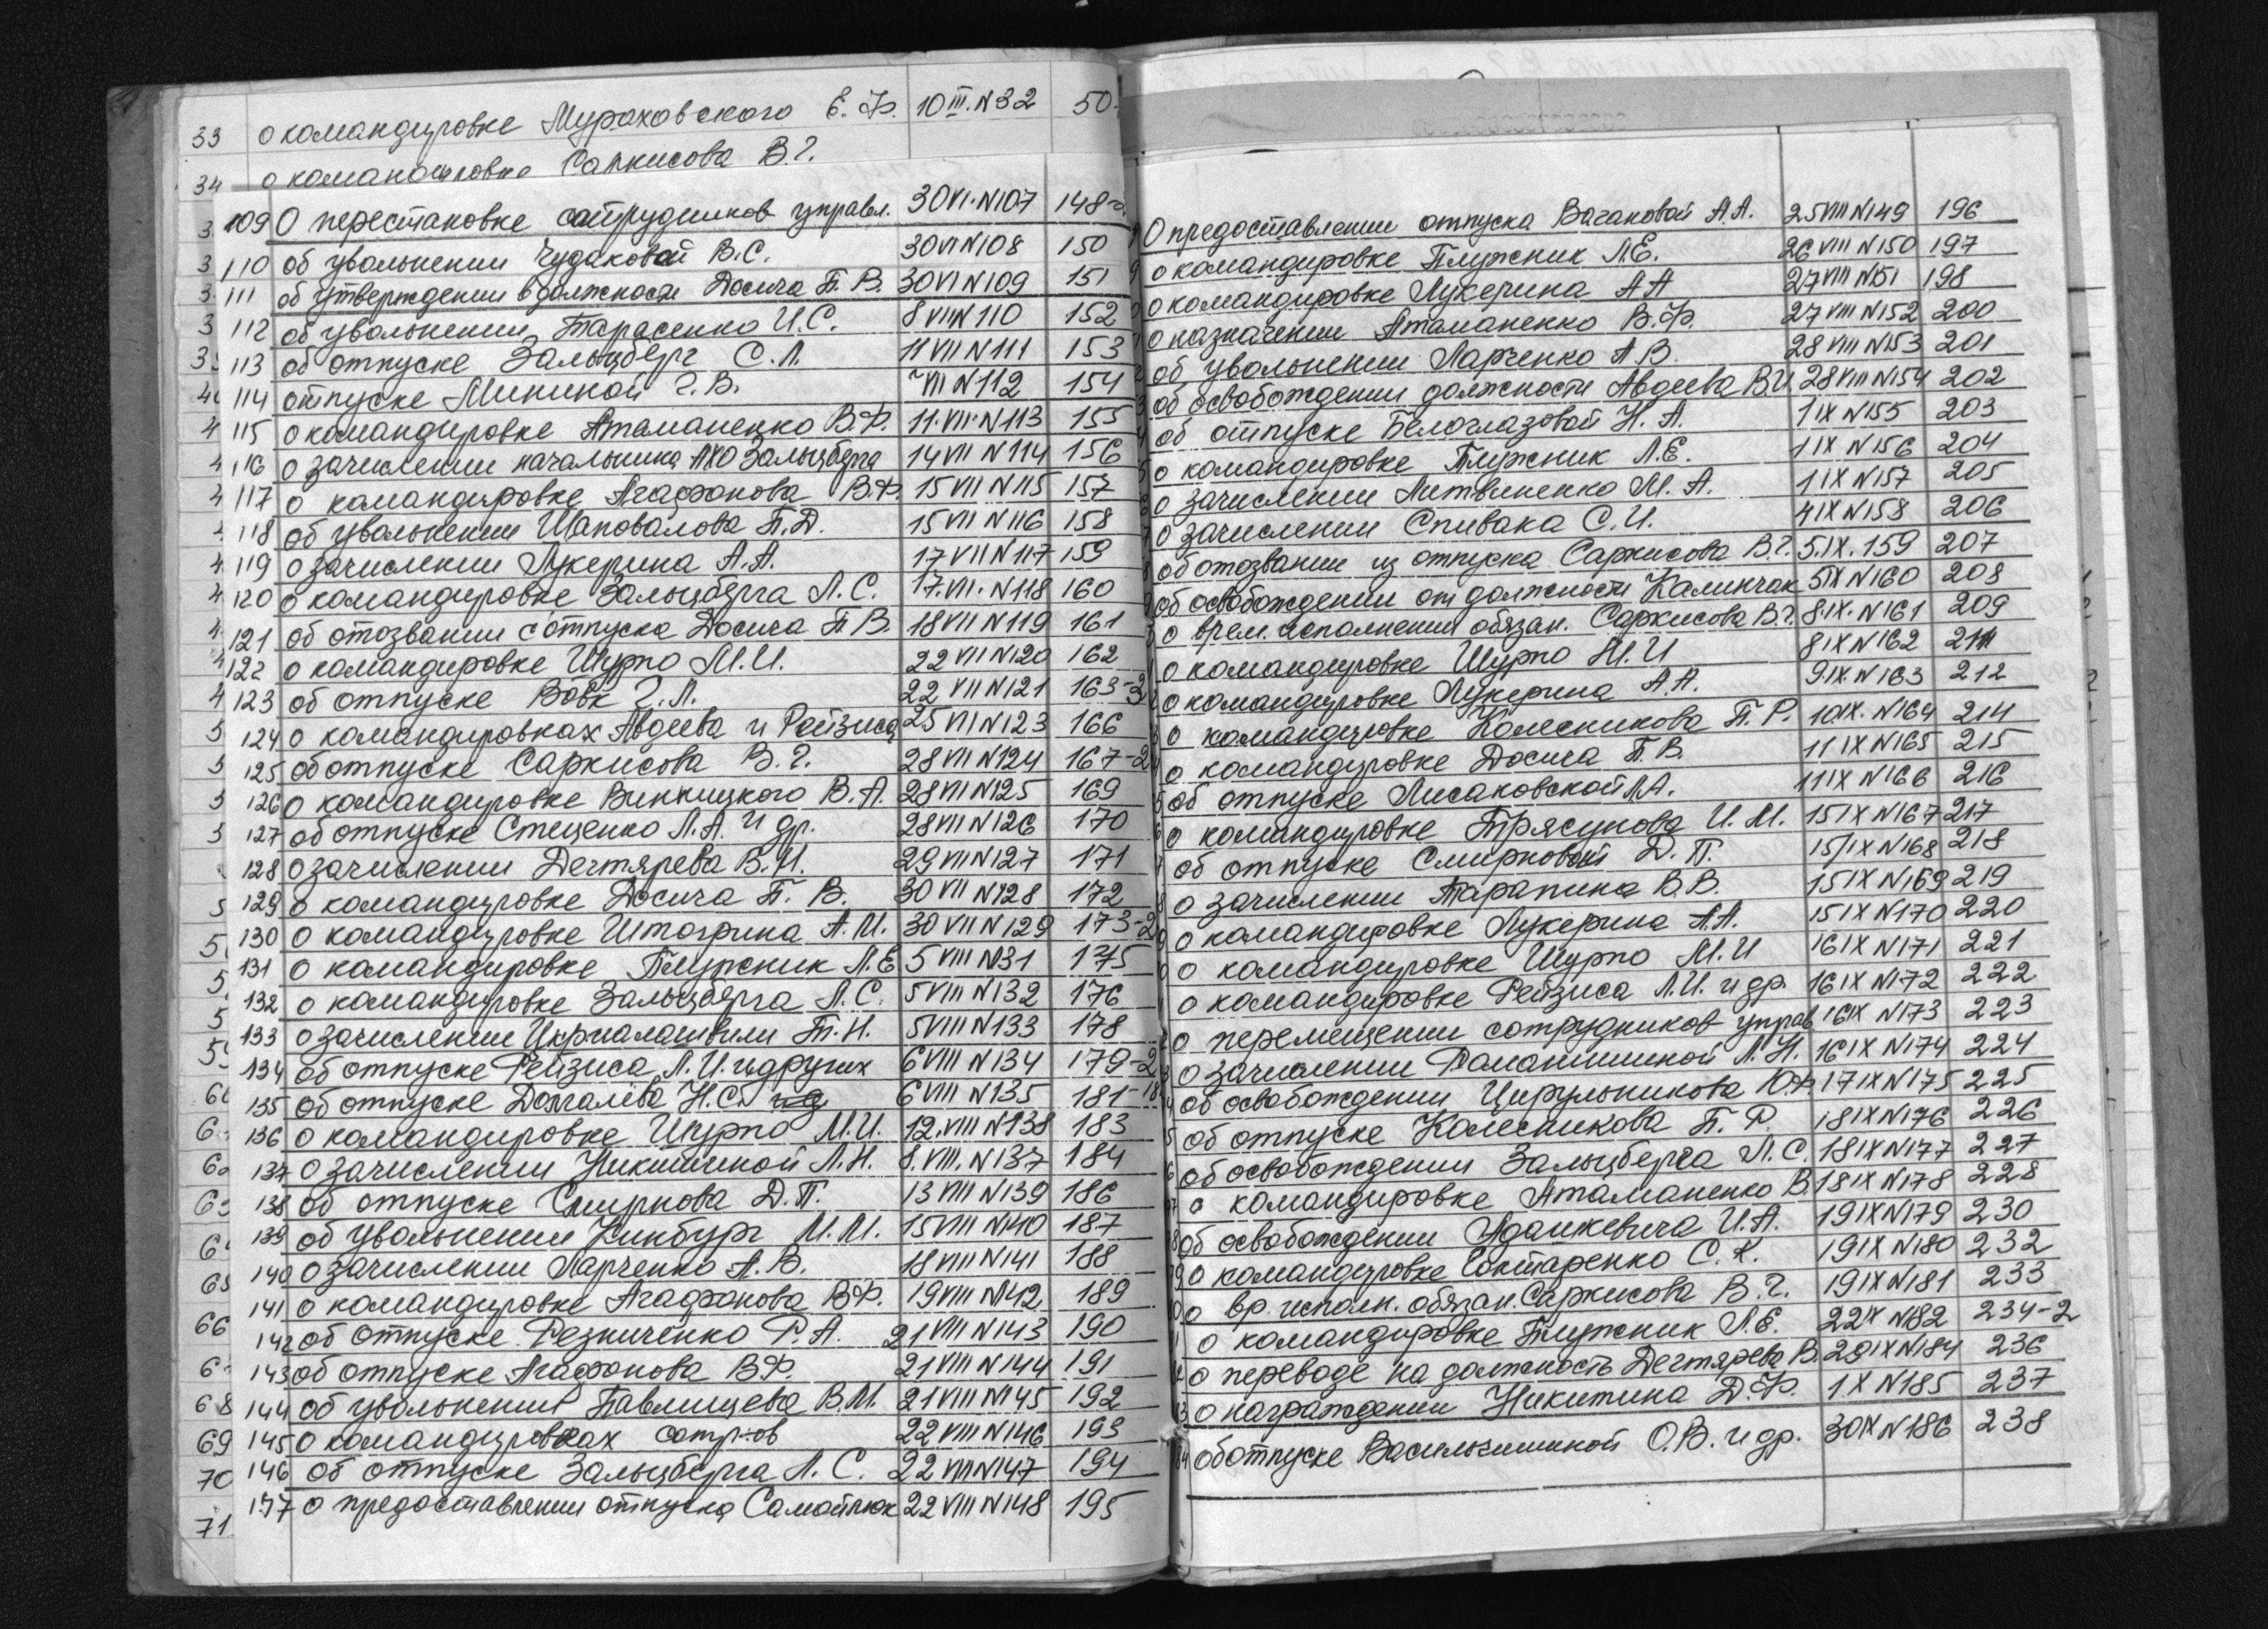 33 о командировке Мураховского Е. Ф. 10 III. N32 50
34 о командировке Саркисова В.Г.
109 О перестановке сотрудников управл. 30 VI. N107 148-2
110 об увольнении Чудаковой В.С. 30 VI N108 150
111 об утверждении в должности Досича П. В. 30 VI N109 151
112 об увольнении Тарасенко И.С. 8 VII N110 152
113 об отпуске Зальцберг С.Л. 11 VII N111 153
114 отпуске Мининой Г.В. VII N112 154
115 о командировке Атаманенко В.Ф. 11.VII.N113 155
116 о зачислении начальника АХО Зальцберга 14 VII N114 156
117 о командировке Агафонова В.Ф. 15 VII N115 157
118 об увольнении Шаповалова П.Д. 15 VII N116 158
119 о зачислении Лукерина А.А. 17 VII N117 159
120 о командировке Зальцберга Л.С. 17.VII. N118 160
121 об отозвании с отпуска Досича П В. 18 VII N119 161
122 о командировке Шурпо М.И. 22 VII N120 162
123 об отпуске Вовк Г.Л. 22 VII N121 163-2
124 о командировках Авдеева и Рейзиса 25 VII N123 166
125 об отпуске Саркисова В.Г. 28 VII N124 167-2
126 о командировке Винницкого В.А. 28 VII N125 169
127 об отпуске Стеценко Л.А. и др. 28 VII N126 170
128 о зачислении Дегтярева В.И. 29 VII N127 171
129 о командировке Досича П. В. 30 VII N128 172
130 о командировке Штогрина А.И. 30 VII N129 173-2
131 о командировке Плужник Л.Е 5 VIII N31 175
132 о командировке Зальцберга Л.С. 5 VIII N132 176
133 о зачислении Цкриалашвили Т.Н. 5 VIII N133 178
134 об отпуске Рейзиса Л.И. и других 6 VIII N134 179-2
135 об отпуске Долгалёва Н.С. 6 VIII N135 181-18
136 о командировке Шурпо М.И. 12.VIII N138 183
137 о зачислении Никитиной Л.Н. 8.VIII. N137 184
138 об отпуске Смирнова Д.П. 13 VIII N139 186
139 об увольнении Кинбург М.М. 15 VIII N140 187
140 о зачислении Ларченко А.В. 18 VIII N141 188
141 о командировке Агафонова В.Ф. 19 VIII N142 189
142 об отпуске Резниченко Р.А. 21 VIII N143 190
143 об отпуске Агафонова В.Ф. 21 VIII N144 191
144 об увольнении Павлищева В.М. 21 VIII N145 192
145 о командировках сотр-ов 22 VIII N146 193
146 об отпуске Зальцберга Л.С. 22 VIII N147 194
147 о предоставлении отпуска Самойлюк 22 VIII N148 195
О предоставлении отпуска Вагановой А.А. 25 VIII N149 196
о командировке Плужник Л.Е. 26 VIII N150 197
о командировке Лукерина А А 27 VIII N151 198
о назначении Атаманенко В.Ф. 27 VIII N152 200
об увольнении Ларченко А.В. 28 VIII N153 201
об освобождении должности Авдеева В.И. 28 VIII N154 202
об отпуске Белоглазовой Н.А. 1 IX N155 203
о командировке Плужник Л.Е. 1 IX N156 204
о зачислении Литвиненко М.А. 1 IX N157 205
о зачислении Спивака С.И. 4 IX N158 206
об отозвании из отпуска Саркисова В.Г. 5.IX. 159 207
об освобождении от должности Калинчак 5 IX N160 208
о врем. исполнении обязан. Саркисова В.Г. 8.IX. N161 209
о командировке Шурпо М.И 8 IX N162 211
о командировке Лукерина А.А. 9.IX N163 212
о командировке Колесникова П.Р. 10 IX. N164 214
о командировке Досича П.В. 11 IX N165 215
об отпуске Лисаковской Л.А. 11 IX N166 216
о командировке Трясунова И.М. 15 IX N167 217
об отпуске Смирновой Д.П. 15 IX N168 218
о зачислении Тарапина В.В. 15 IX N169 219
о командировке Лукерина А.А. 15 IX N170 220
о командировке Шурпо М.И 16 IX N171 221
о командировке Рейзиса Л.И. и др. 16 IX N172 222
о перемещении сотрудников управ 16 IX N173 223
о зачислении Романишиной Л.Н. 16 IX N174 224
об освобождении Цирульникова Ю.Ф. 17 IX N175 225
об отпуске Колесникова П.Р. 18 IX N176 226
об освобождении Зальцберга Л.С. 18 IX N177 227
о командировке Атаманенко В. 18 IX N178 228
об освобождении Адашкевича И.А. 19 IX N179 230
о командировке Гонтаренко С.К. 19 IX N180 232
о вр. исполн. обязан. Саркисова В.Г. 19 IX N181 233
о командировке Плужник Л.Е. 22 IX N182 234-2
о переводе на должность Дегтярева В. 29 IX N184 236
о награждении Никитина Д.Ф. 1 X N185 237
об отпуске Васильчишиной О.В. и др. 30 IX N186 238